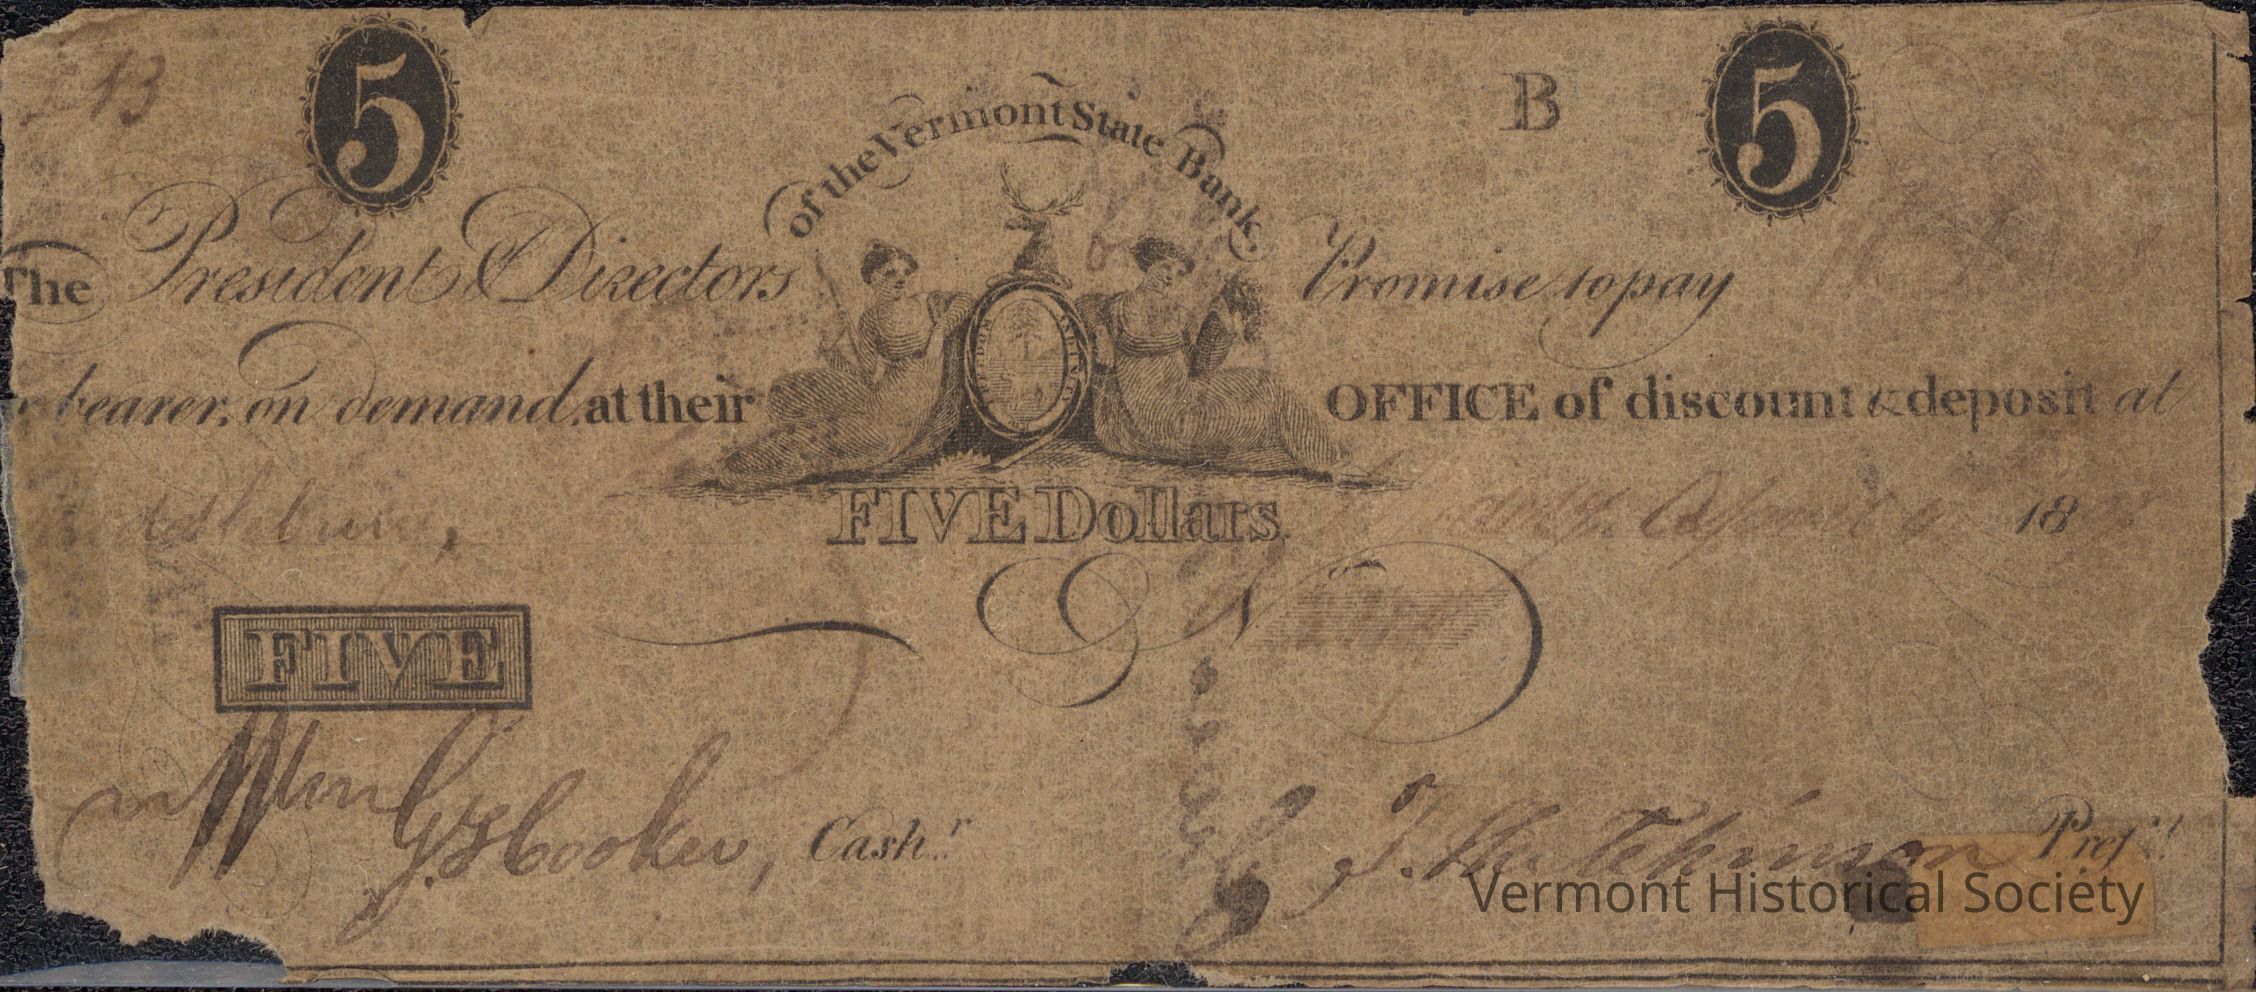 5
B
5
of the Vermont State Bank.
The President & Directors
Promise to pay
bearer, on demand, at their
OFFICE of discount & deposit at
FREEDOM
FIVE Dollars.
April 18
N
FIVE
Wm G. Hooker, Cash.r
T. Hutchinson Pres.t
Vermont Historical Society